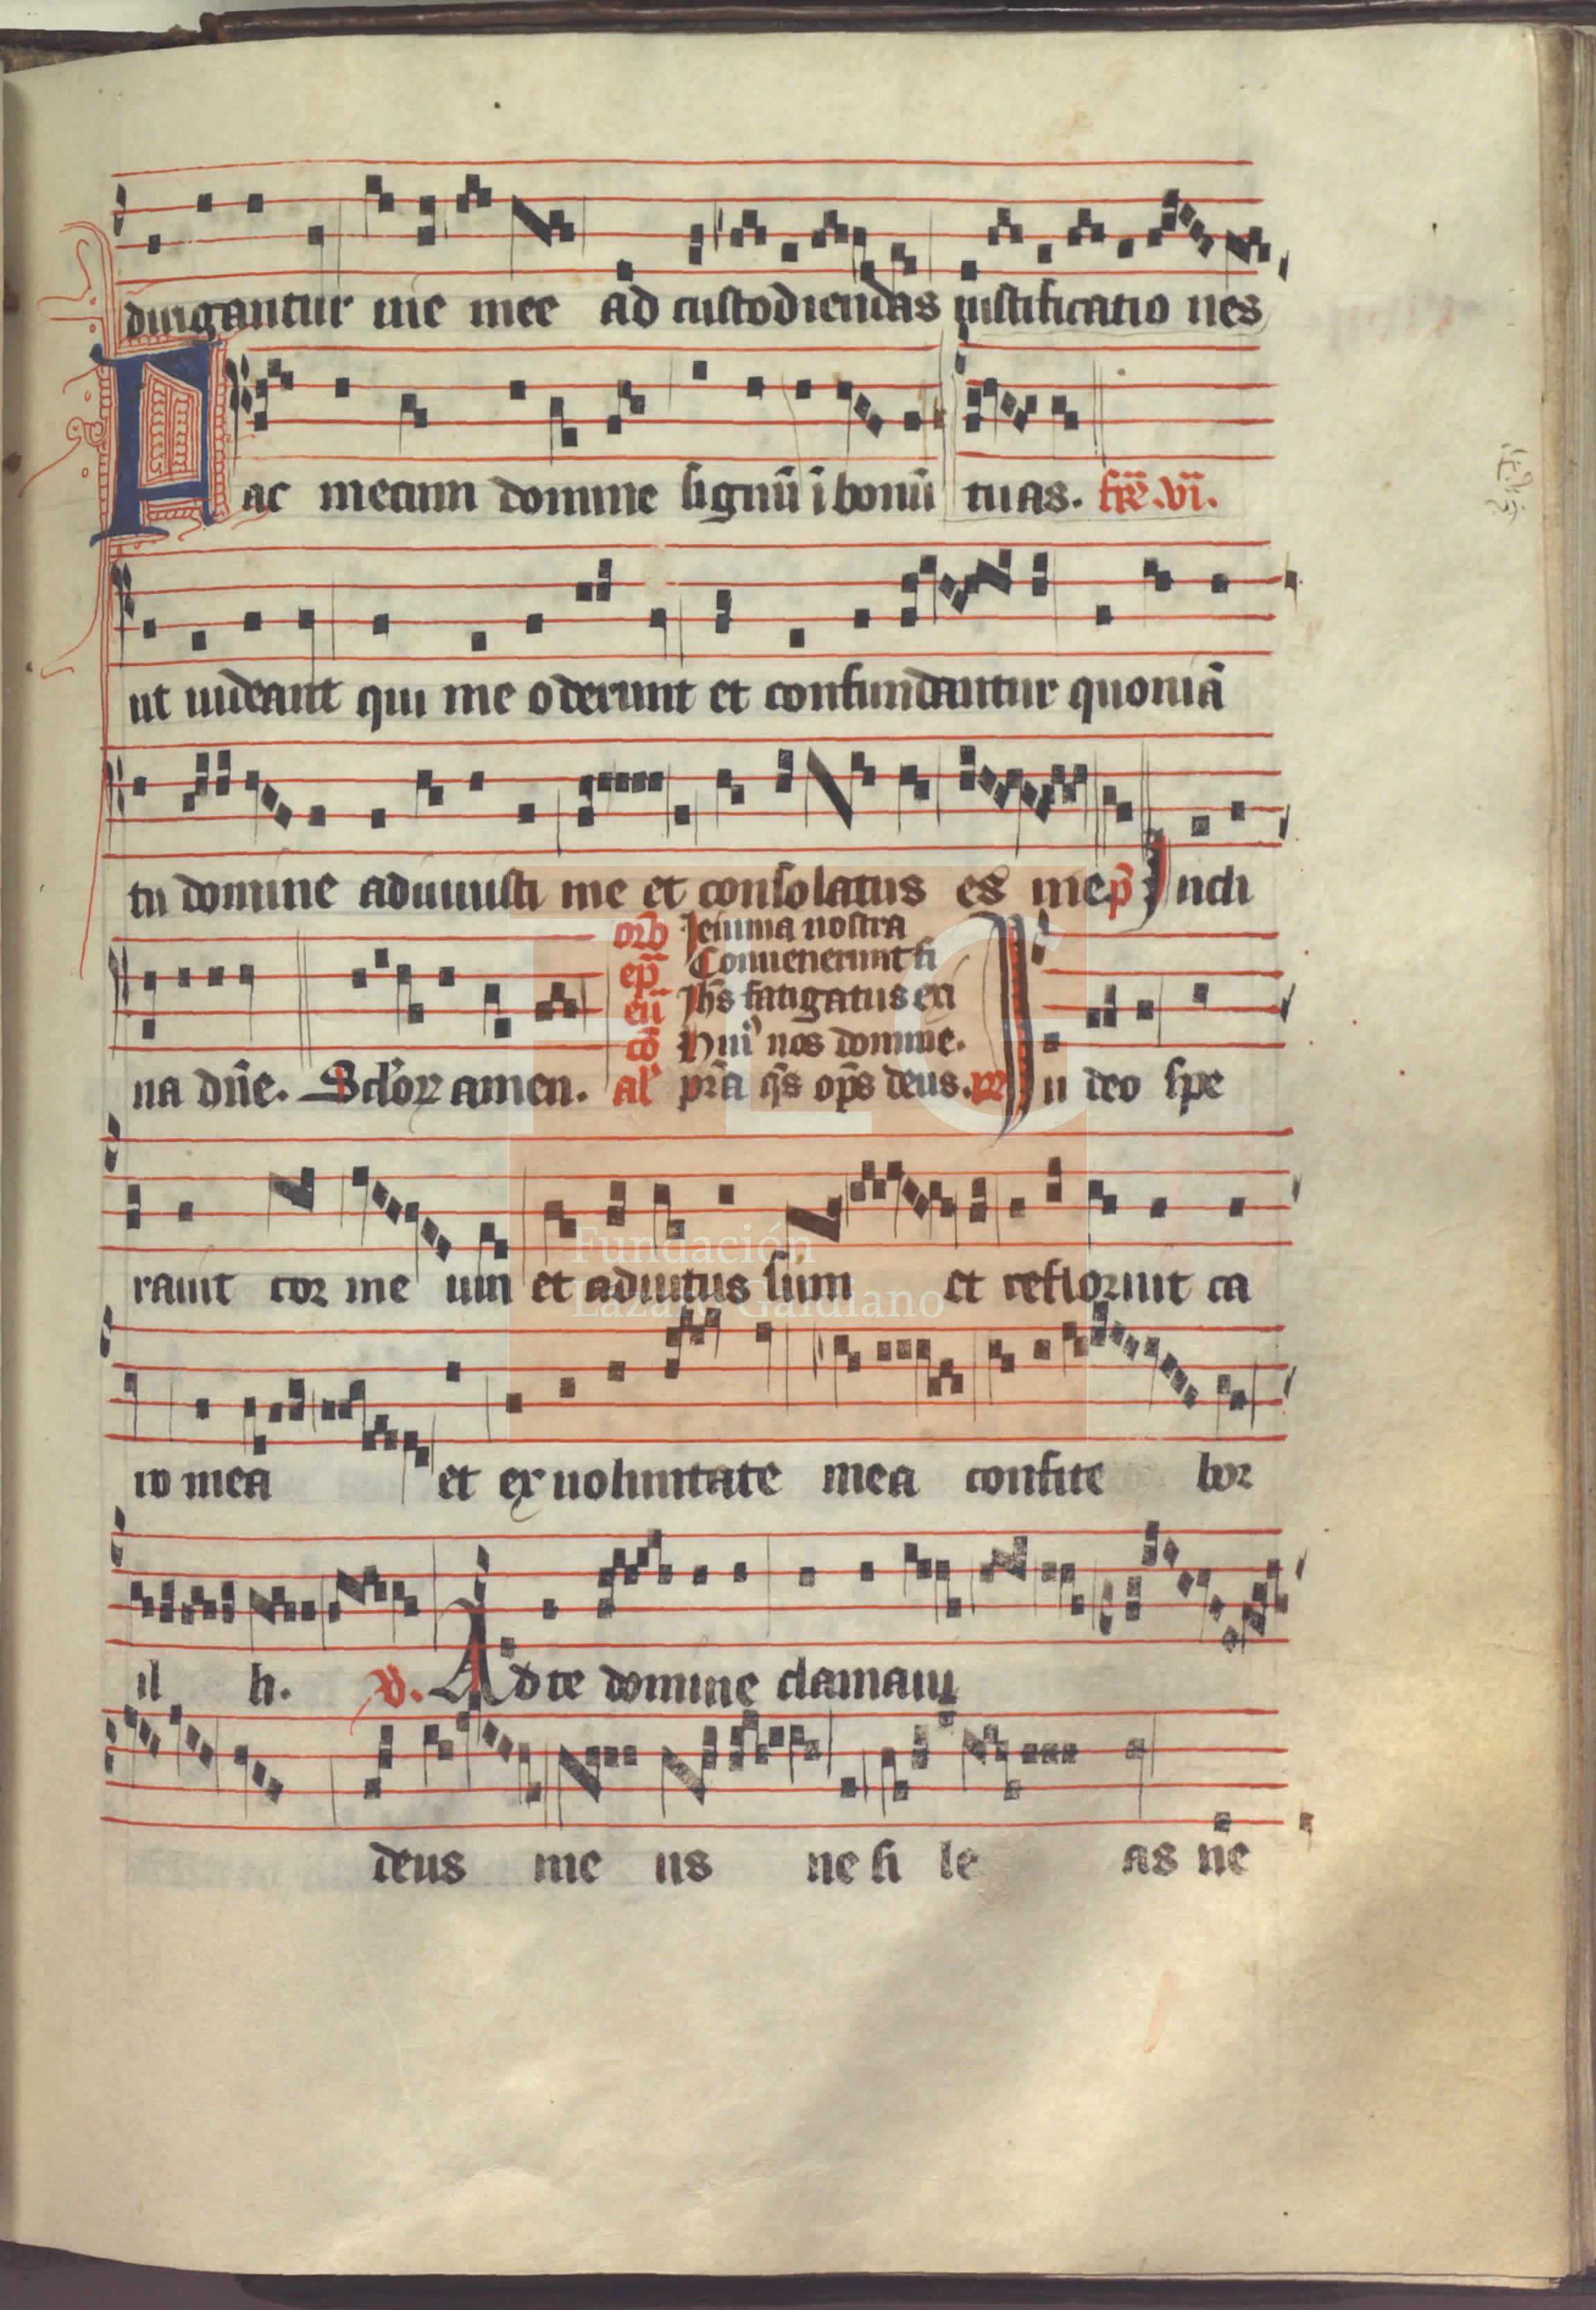 dirigantur uie mee ad custodiendas iustificatio nes
Fac mecum domine signū ī bonū tuas. fr̄e. vi.
ut uideant qui me oderunt et confundantur quoniā
tu domine adiuuisti me et consolatus es me p̄s Incli
orō Ieiunia nostra
ep̄ Conuenerunt fi
eū Ihs̄ fatigatus ex
cō Huiꝰ nos domine.
na dn̄e. Sclor amen. al' pr̄a qs̄ op̄s deus. In deo spe
rauit cor me um et adiutus sum et refloruit ca
Fundación
Lázaro Galdiano
ro mea et ex uoluntate mea confite bor
il li. V. Ad te domine clamaui
deus me us ne si le as ne